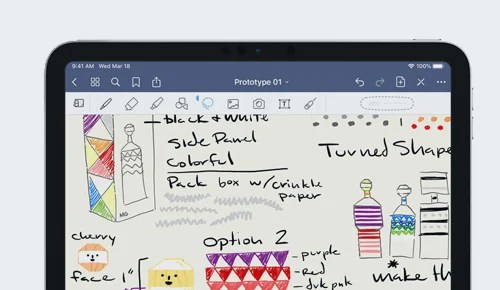 9:41 AM Wed Mar 18
100%
Prototype 01
black & white
Side Panel
Colorful
Pack box w/crinkle
paper
MG
Turned Shape
cherry
face 1"
Option 2
purple
Red
make th